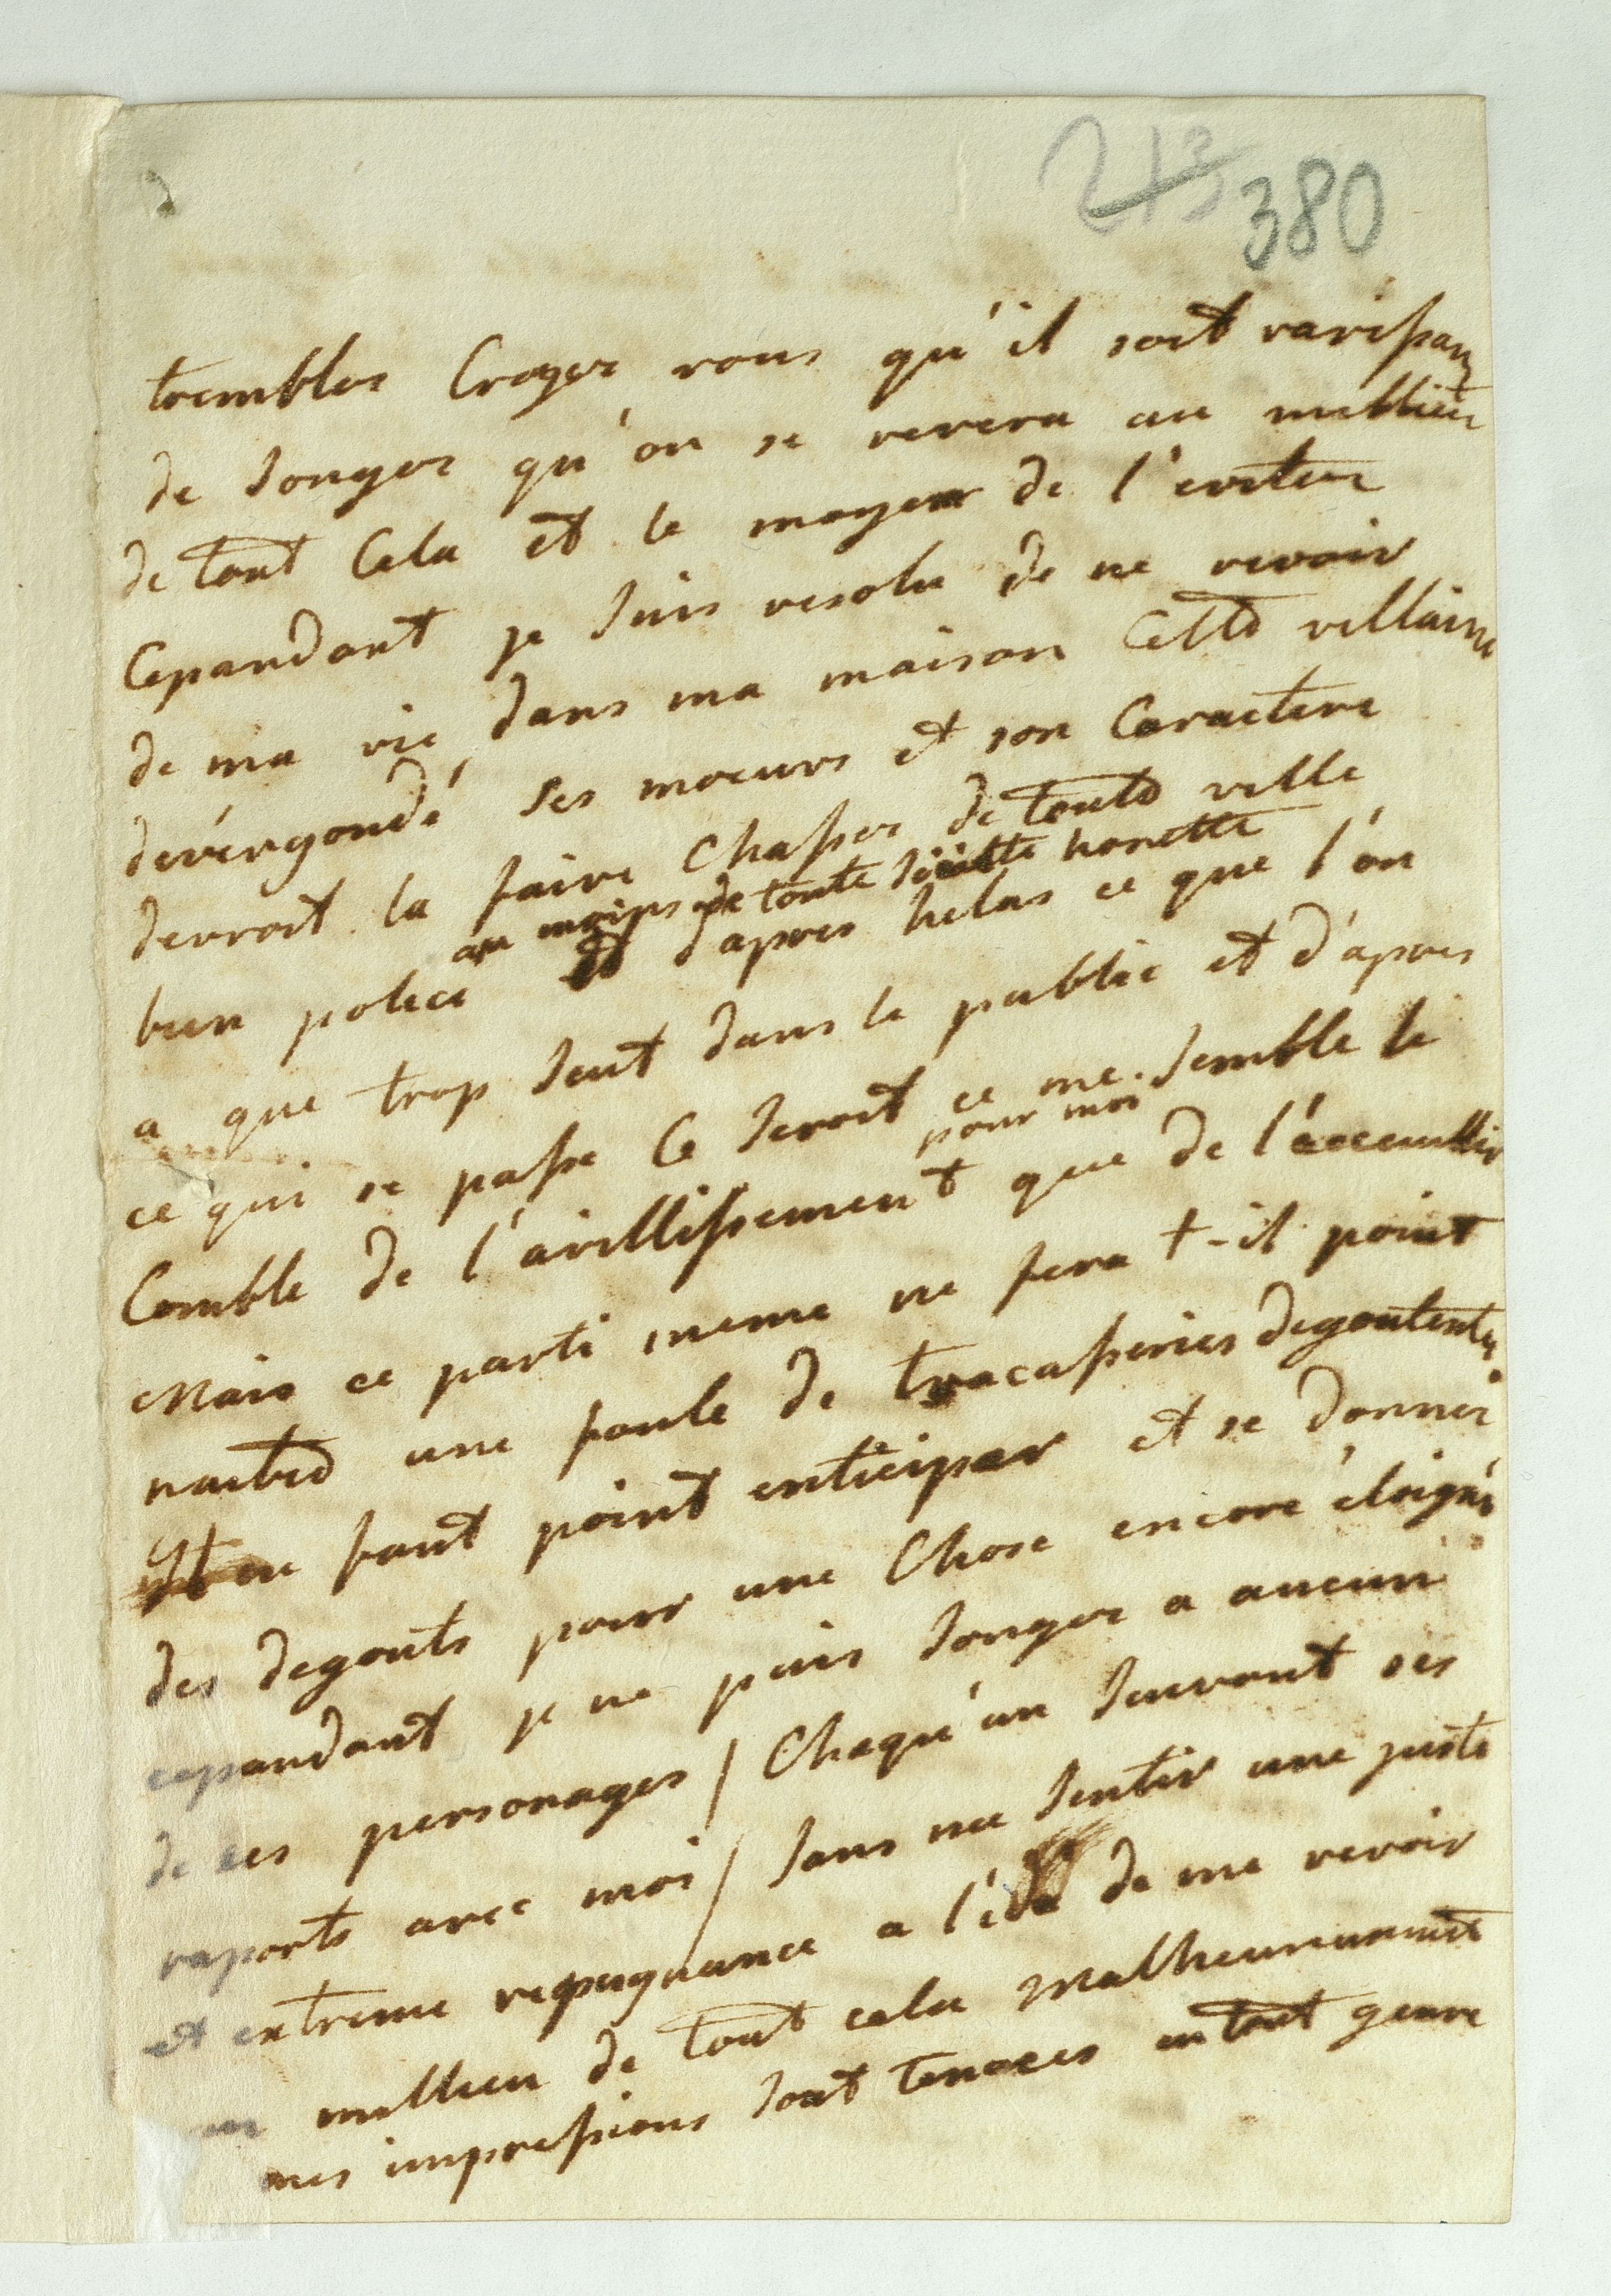 213 380
trembler Croyez vous qu'il soit ravissant
de songer qu'on se revera au millieu
de tout Cela et le moyen de l'eviter
Cepandant je suis resolu de ne revoir
de ma vie dans ma maison Cette villaine
dévérgondé ses moeurs et son Caractere
devroit la faire Chasser de toute ville
au moins de toute société honette
bien police et d'apres helas ce que l'on
a que trop seut dans le public et d'apres
ce qui se passe Ce seroit ce me semble le
pour moi
Comble de l'avillissement que de l'acceuillir
Mais ce parti meme ne fera t-il point
naitre une foule de tracasseries degoutentes
Il ne faut point enticiper et se donner
des degouts pour une Chose encore éloigné
cepandant je ne puis songer a aucun
de ces personages / Chaqu'un suivant ses
raports avec moi / sans me sentir une juste
et extreme repugnance a l'idé de me revoir
au millieu de tout cela Malheureusement
mes impressions sont tenaces en tout genre